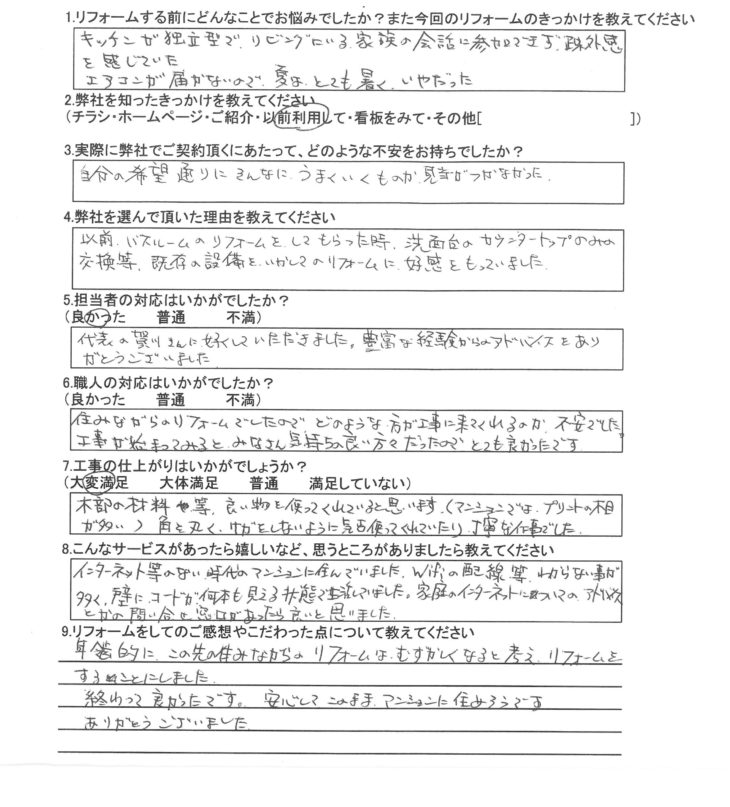 1.リフォームする前にどんなことでお悩みでしたか？また今回のリフォームのきっかけを教えてください
キッチンが独立型で、リビングにいる家族の会話に参加できず、疎外感
を感じていた
エアコンが届かないので、夏は、とても暑く、いやだった
2.弊社を知ったきっかけを教えてください
(チラシ・ホームページ・ご紹介・以前利用して・看板をみて・その他[ ])
3.実際に弊社でご契約頂くにあたって、どのような不安をお持ちでしたか？
自分の希望通りにそんなに、うまくいくものか、見当がつかなかった。
4.弊社を選んで頂いた理由を教えてください
以前、バスルームのリフォームをしてもらった時、洗面台のカウンタートップのみの
交換等、既存の設備をいかしてのリフォームに、好感をもっていました。
5.担当者の対応はいかがでしたか？
(良かった 普通 不満)
代表の さんに好くしていただきました。豊富な経験からのアドバイスをあり
がとうございました
6.職人の対応はいかがでしたか？
(良かった 普通 不満)
住みながらのリフォームでしたので どのような方が工事に来てくれるのか、不安でした。
工事が始まってみると、みなさん気持ちの良い方々だったので とても良かったです
7.工事の仕上がりはいかがでしょうか？
(大変満足 大体満足 普通 満足していない)
木部の材料 等、良い物を使ってくれていると思います、(マンションでは、プリントの木目
が多い) 角を丸く、けがをしないように 使ってくれていたり 丁寧な仕事でした。
8.こんなサービスがあったら嬉しいなど、思うところがありましたら教えてください
インターネット等のない時代のマンションに住んでいました、Wifiの配線等、わからない事が
多く、壁に、コードが何本も見える状態で生活してました。家庭のインターネットについてのアドバイス
とかの問い合せ窓口があったら良いと思いました。
9.リフォームをしてのご感想やこだわった点について教えてください
年齢的に、この先の住みながらのリフォームは、むずかしくなると考え、リフォームを
することにしました。
終わって良かったです。 安心してこのまま、マンションに住めそうです
ありがとうございました